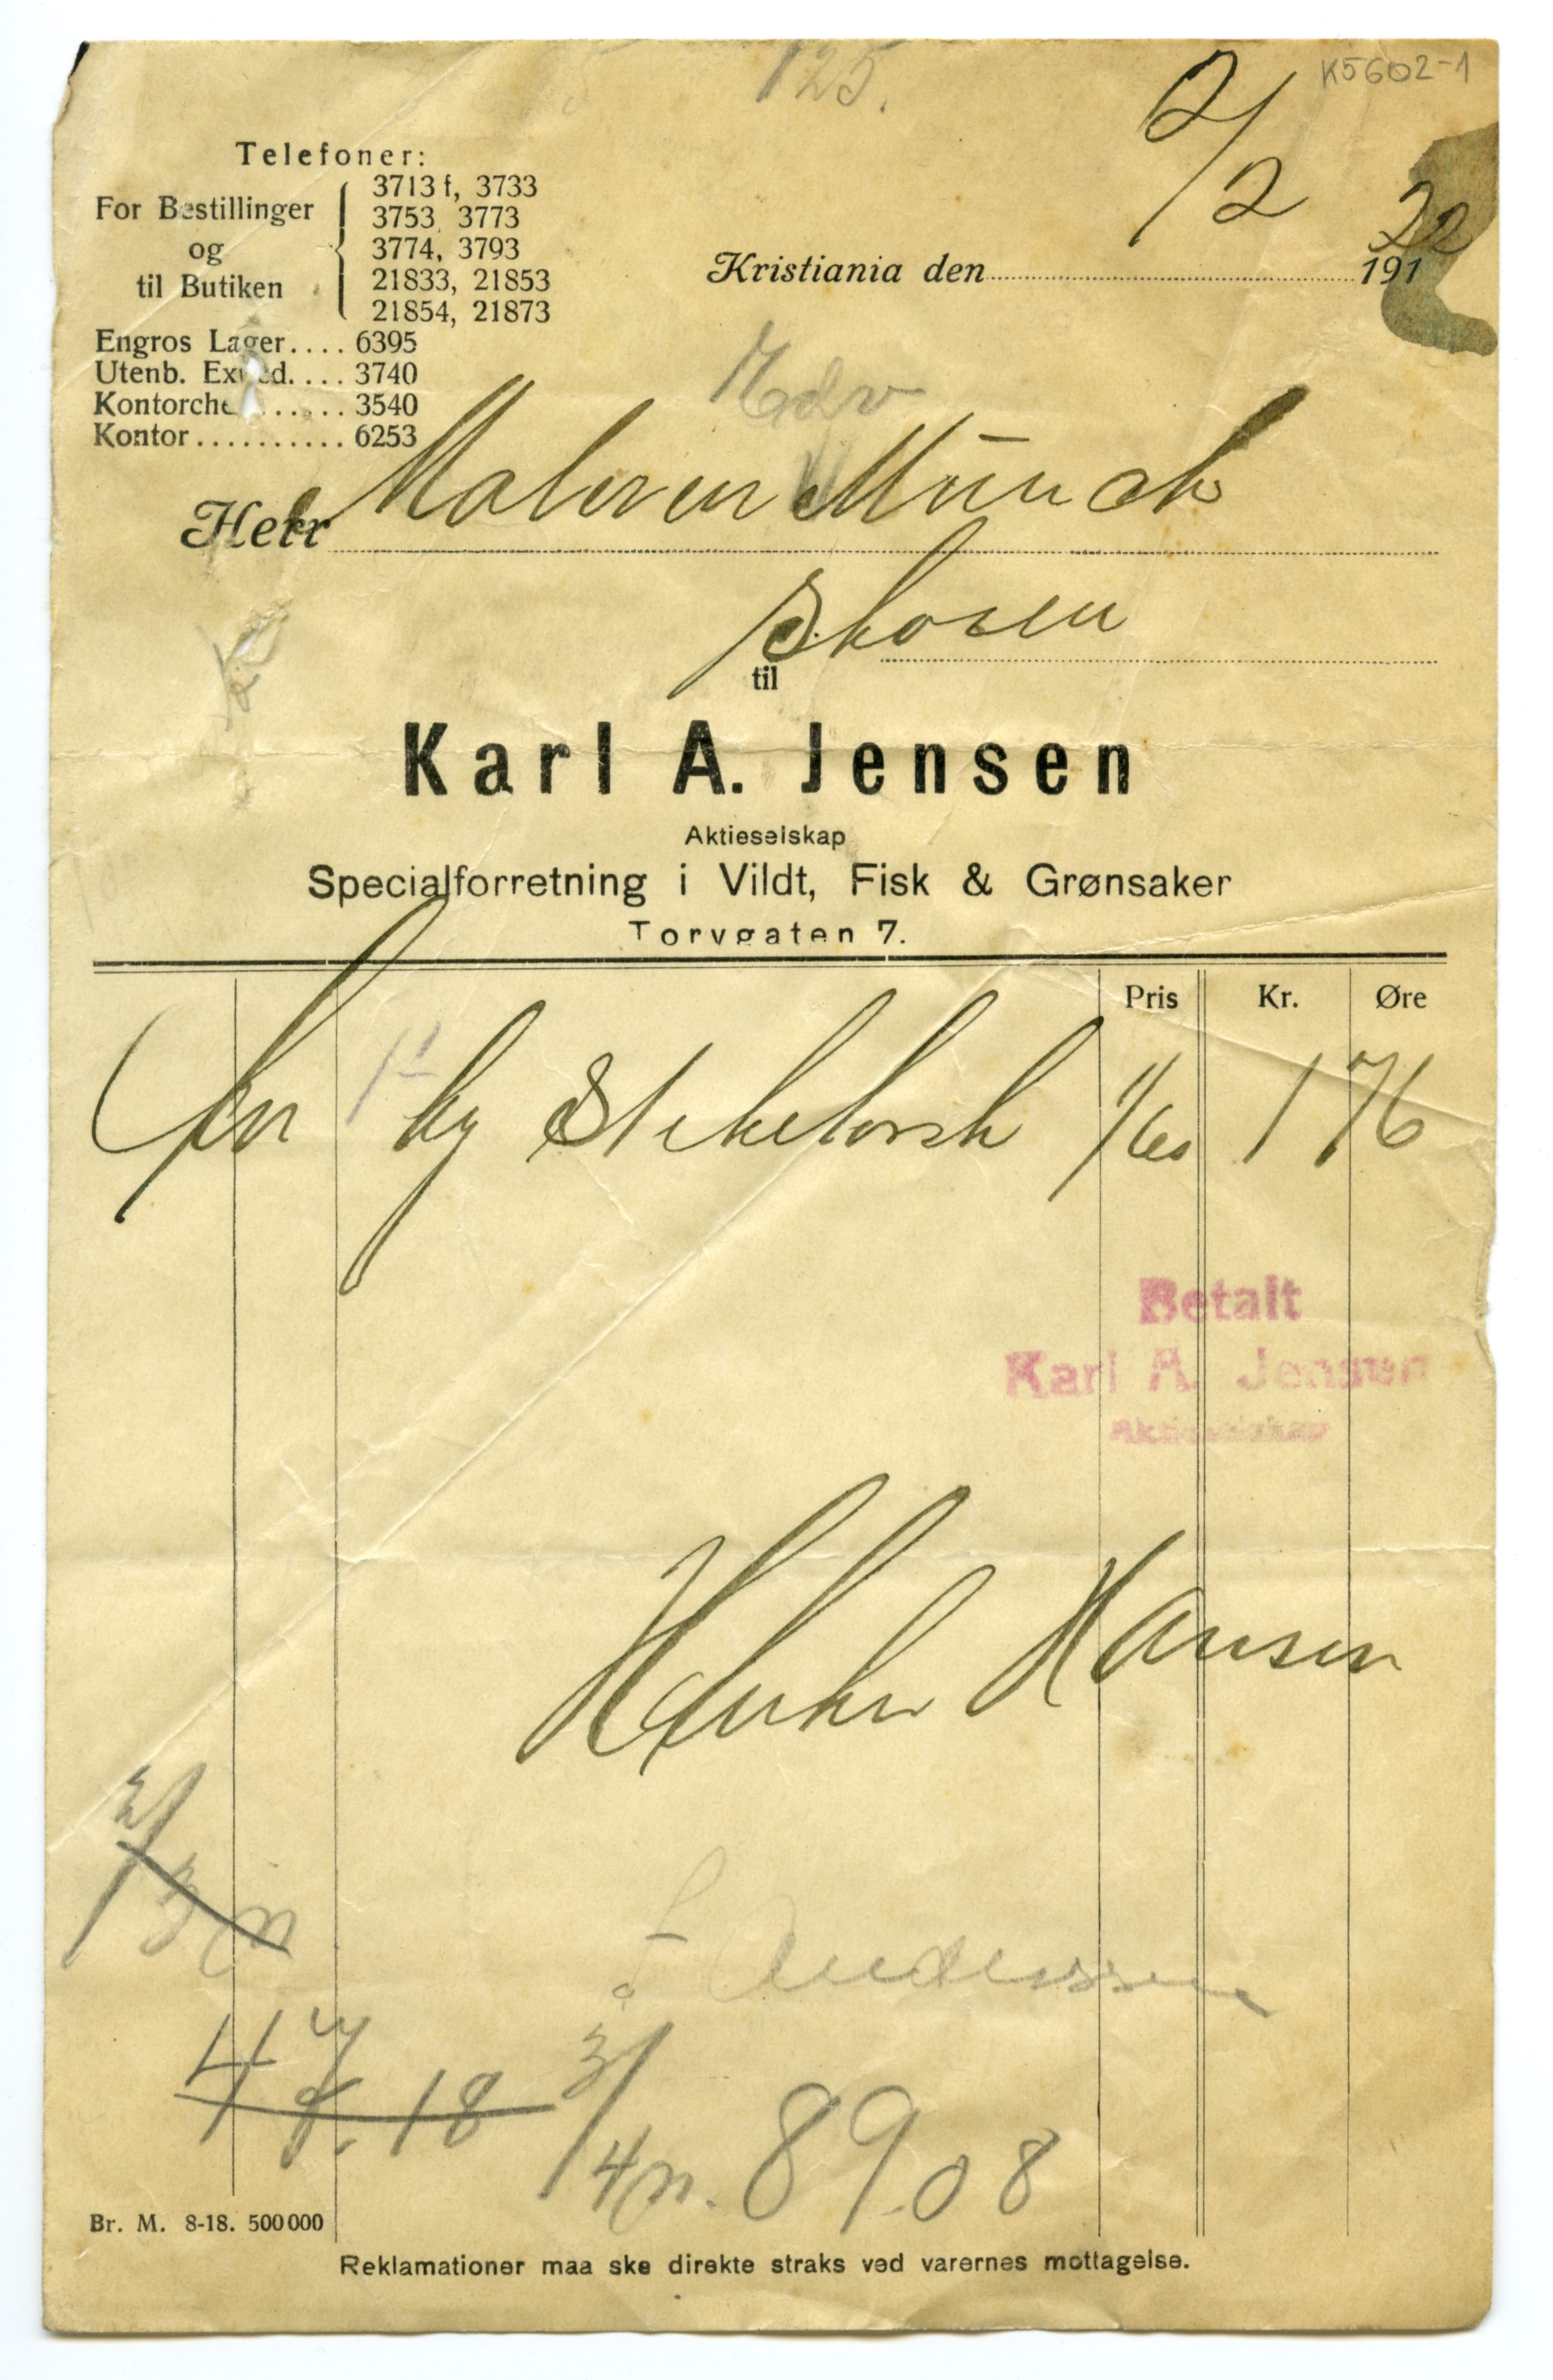 125.
K5602-1
2/2 22
Telefoner:
For Bestillinger og til Butiken
3713 f, 3733
3753, 3773
3774, 3793
21833, 21853
21854, 21873
Engros Lager.... 6395
Utenb. Exped.... 3740
Kontorche...... 3540
Kontor.......... 6253
Kristiania den 191
Edv
Herr Maleren Münch
Skøien
til
Karl A. Jensen
Aktieselskap
Specialforretning i Vildt, Fisk & Grønsaker
Torvgaten 7.
Pris Kr. Øre
1¹ kg Steketorsk 1/60 1 76
Betalt
Karl A. Jensen
Aktieselskap
Hansen
Anderssen
47.18
3/4 m. 89.08
Br. M. 8-18. 500 000
Reklamationer maa ske direkte straks ved varernes mottagelse.